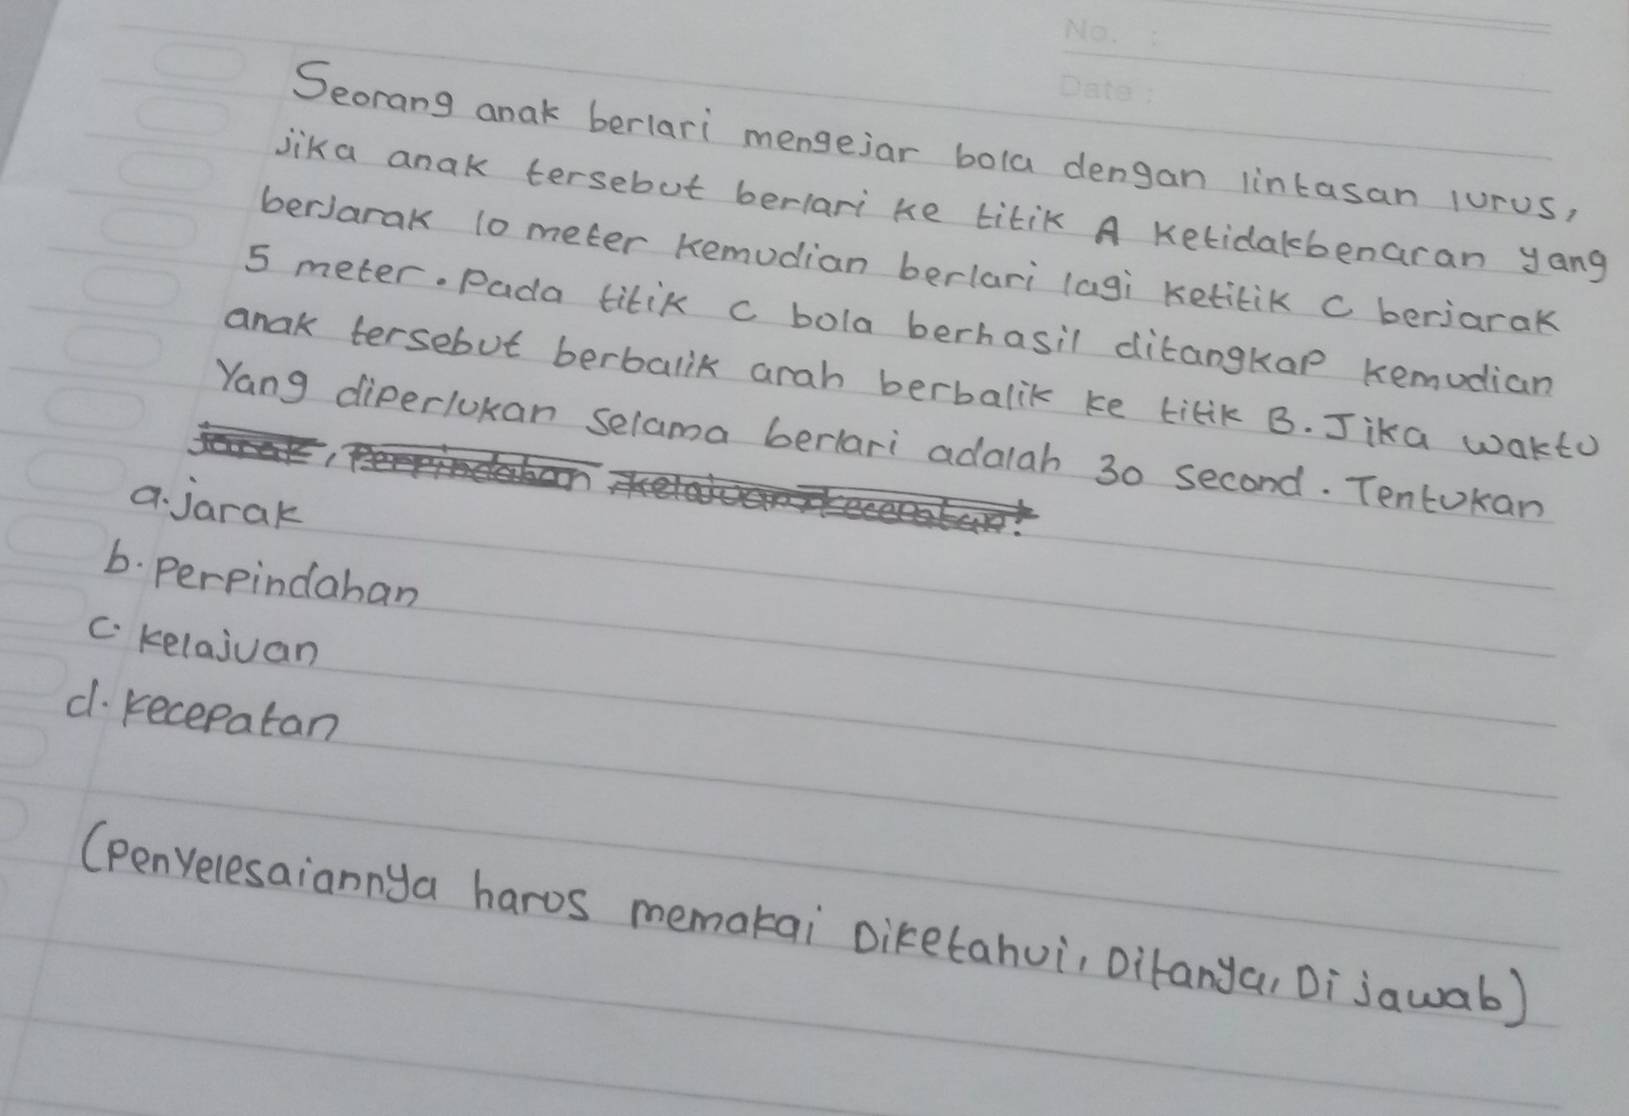 No. :
Date :
Seorang anak berlari mengejar bola dengan lintasan lurus,
jika anak tersebut berlari ke titik A Ketidakbenaran yang
berjarak 10 meter kemudian berlari lagi ketitik C berjarak
5 meter. Pada titik C bola berhasil ditangkap kemudian
anak tersebut berbalik arah berbalik ke titik B. Jika waktu
Yang diperlukan selama berlari adalah 30 second. Tentukan
jarak, Perpindahan, kelajuan, kecepatan!
a. jarak
b. Perpindahan
c. kelajuan
d. kecepatan
(Penyelesaiannya harus memakai Diketahui, Ditanya, Di jawab)